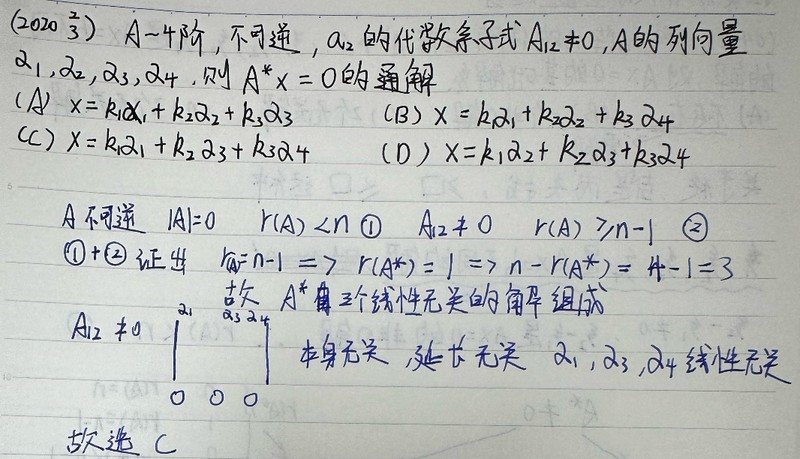 (2020 2/3) A~4阶,不可逆,a12的代数余子式A12≠0,A的列向量
α1,α2,α3,α4.则A*x=0的通解
(A) x=k1α1+k2α2+k3α3 (B) x=k1α1+k2α2+k3α4
(C) x=k1α1+k2α3+k3α4 (D) x=k1α2+k2α3+k3α4
A不可逆 |A|=0 r(A)<n ① A12≠0 r(A)≥n-1 ②
①+②证出 r(A)=n-1 => r(A*)=1 => n-r(A*)=4-1=3
故 A*由三个线性无关的解组成
α1 α3 α4
A12≠0 本身无关,延长无关 α1,α3,α4线性无关
0 0 0
故选 C